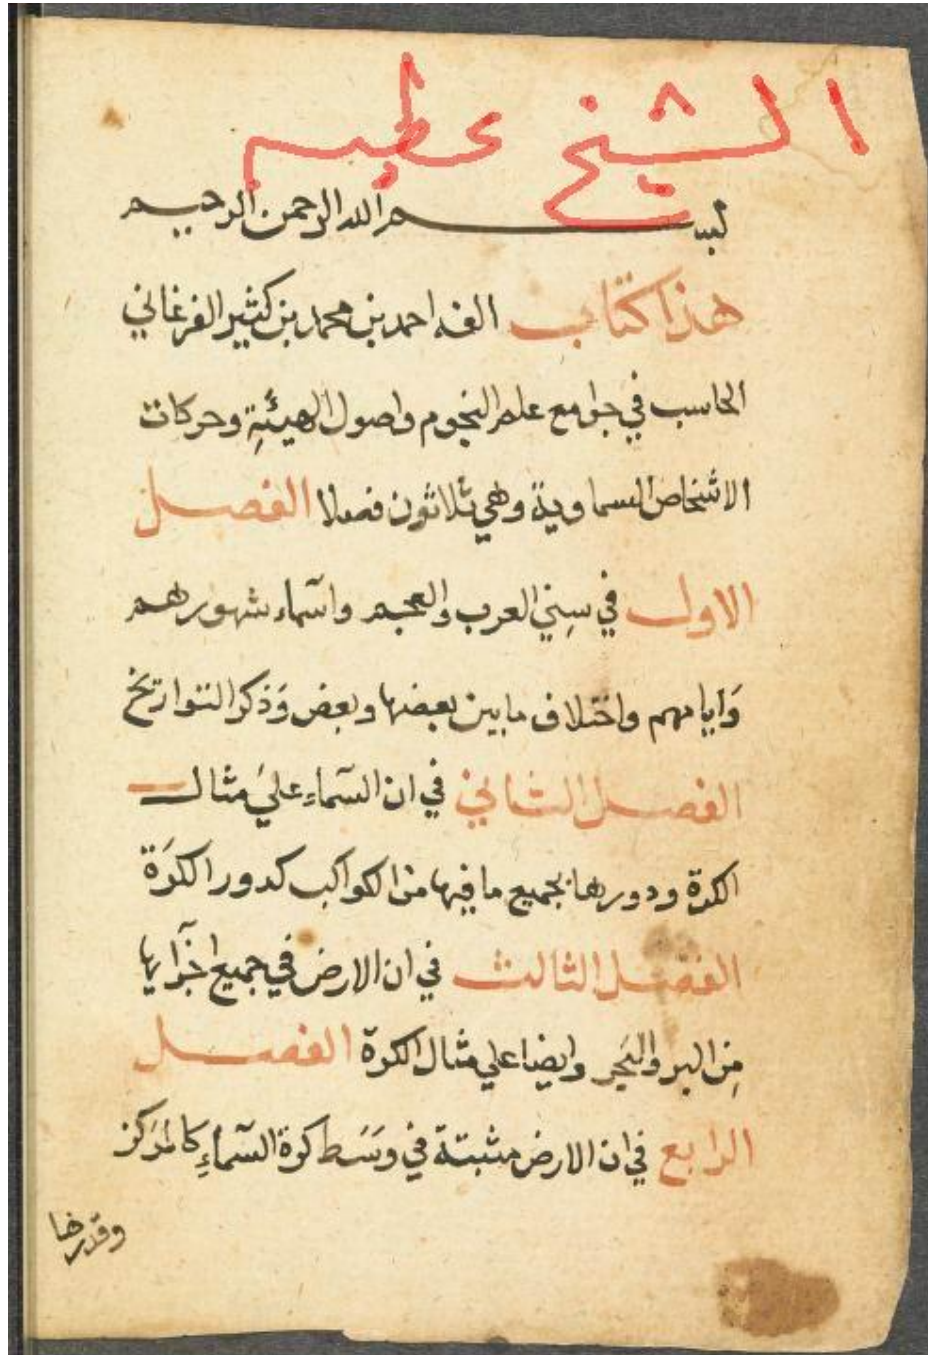 الشيخ عظيم
بسم الله الرحمن الرحيم
هذا كتاب الفه احمد بن محمد بن كثير الفرغاني
الحاسب في جوامع علم النجوم واصول الهيئةِ وحركات
الاشخاص السماوية وهي ثلاثون فصلا الفصل
الاول في سِني العرب والعجم واسمآء شهورهم
وَايامهم واختلاف ما بين بعضها وبعض وَذكر التواريخ
الفصل الثاني في ان السمآءِ عليَ مثال
الكرة ودورها بجميع ما فيها من الكواكب كدور الكرَة
الفصل الثالث في ان الارض في جميع اجزآيها
مِن البر والبَحر وايضا علي مثال الكرة الفصل
الرابع في ان الارض مثبتة في وسَط كرة السمآءِ كالمرَكز
وقدرها